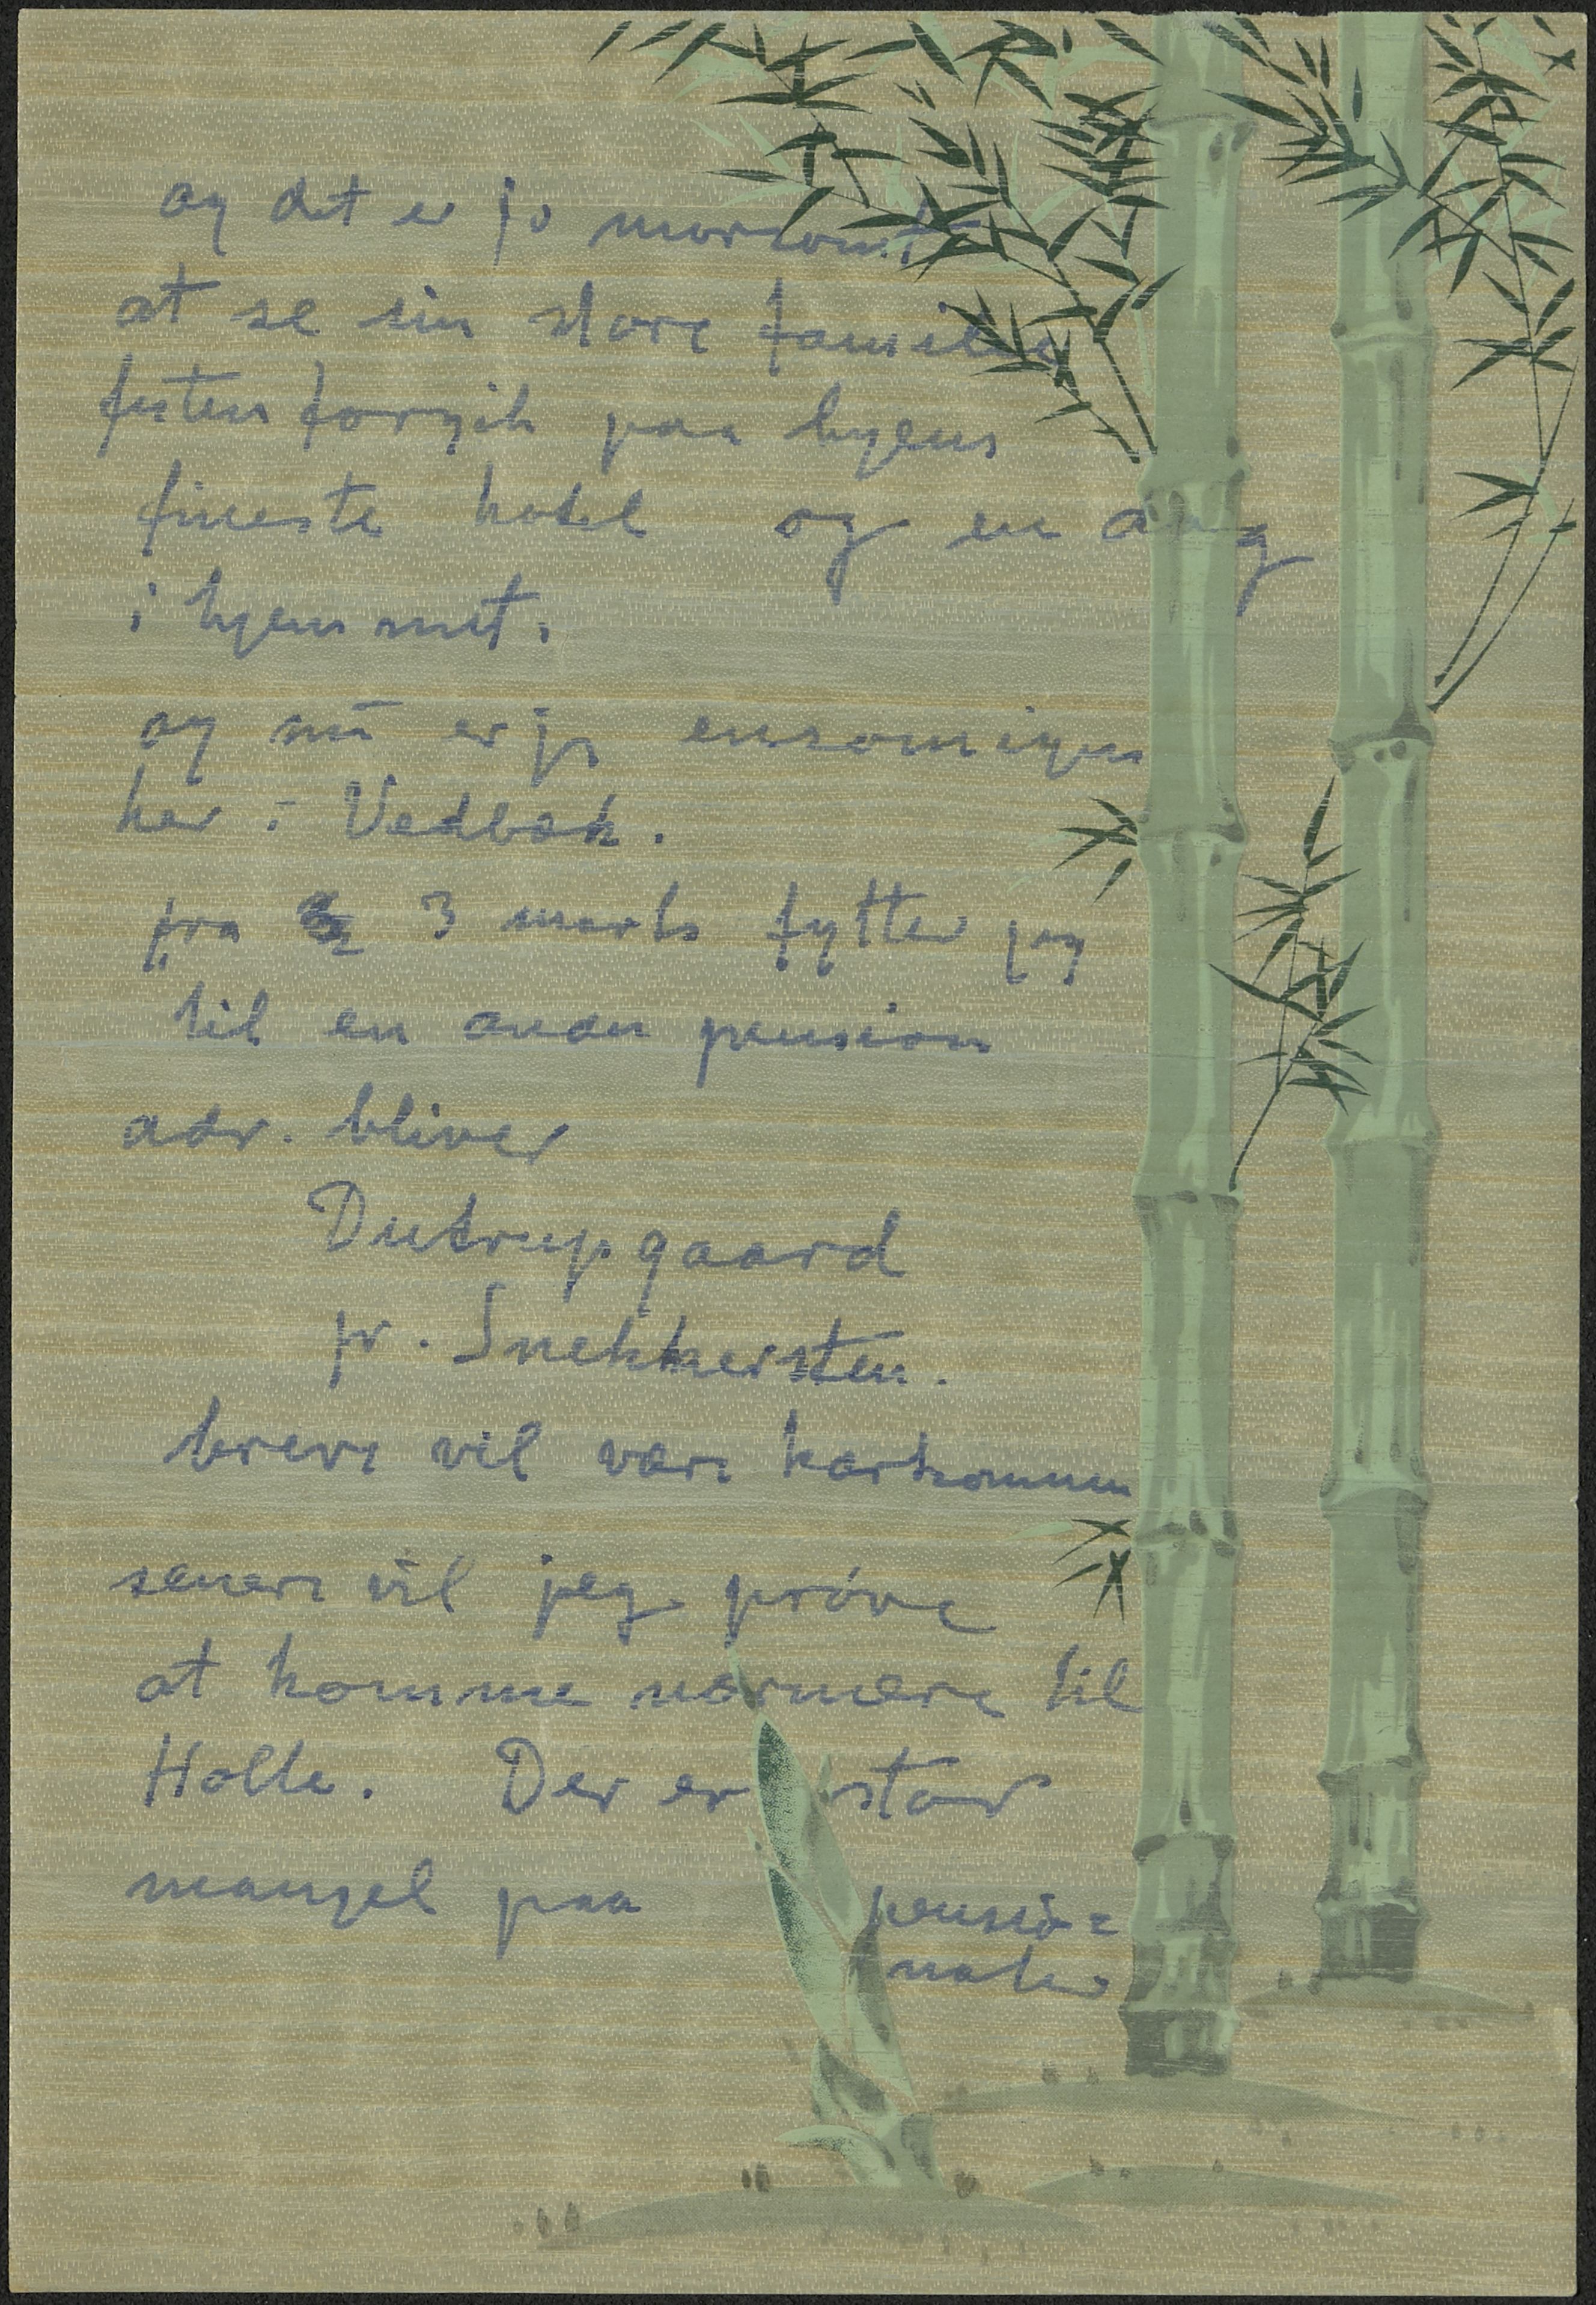 og det er jo morsomt
at se sin store familie
festen forgik paa byens
fineste hotel og en dag
i hjemmet.
og nu er jo ensom igen
her i Vedbæk.
fra 3 marts fytter jeg
til en anden pension
adr. bliver
Dutrupgaard
pr. Snekkersten.
breve vil være kærkommen
senere vil jeg próve
at komme nærmere til
Holte. Der er stor
mangel paa pensio=
nater